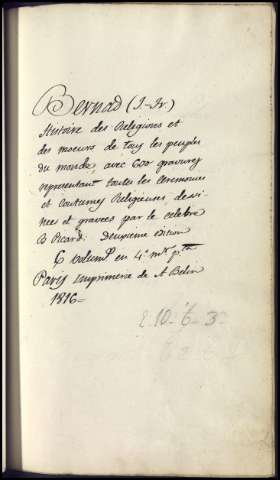 Bernard (J-Fr.)
Histoire des Religions et
des moeurs de tous les peuples
du monde, avec 600 gravures
representant toutes les ceremonies
et coutumes Religieuses, dessi-
nées et gravées par le celebre
B Picard. Deuxieme edition
6 volum. en 4°
Paris Imprimerie de A Belin
1816 =
E. 10 - 6 - 3